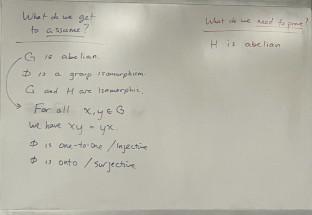 What do we get
to assume?
G is abelian.
Φ is a group isomorphism
G and H are isomorphic.
For all x, y ∈ G
we have xy = yx.
Φ is one-to-one / injective
Φ is onto / surjective
What do we need to prove?
H is abelian